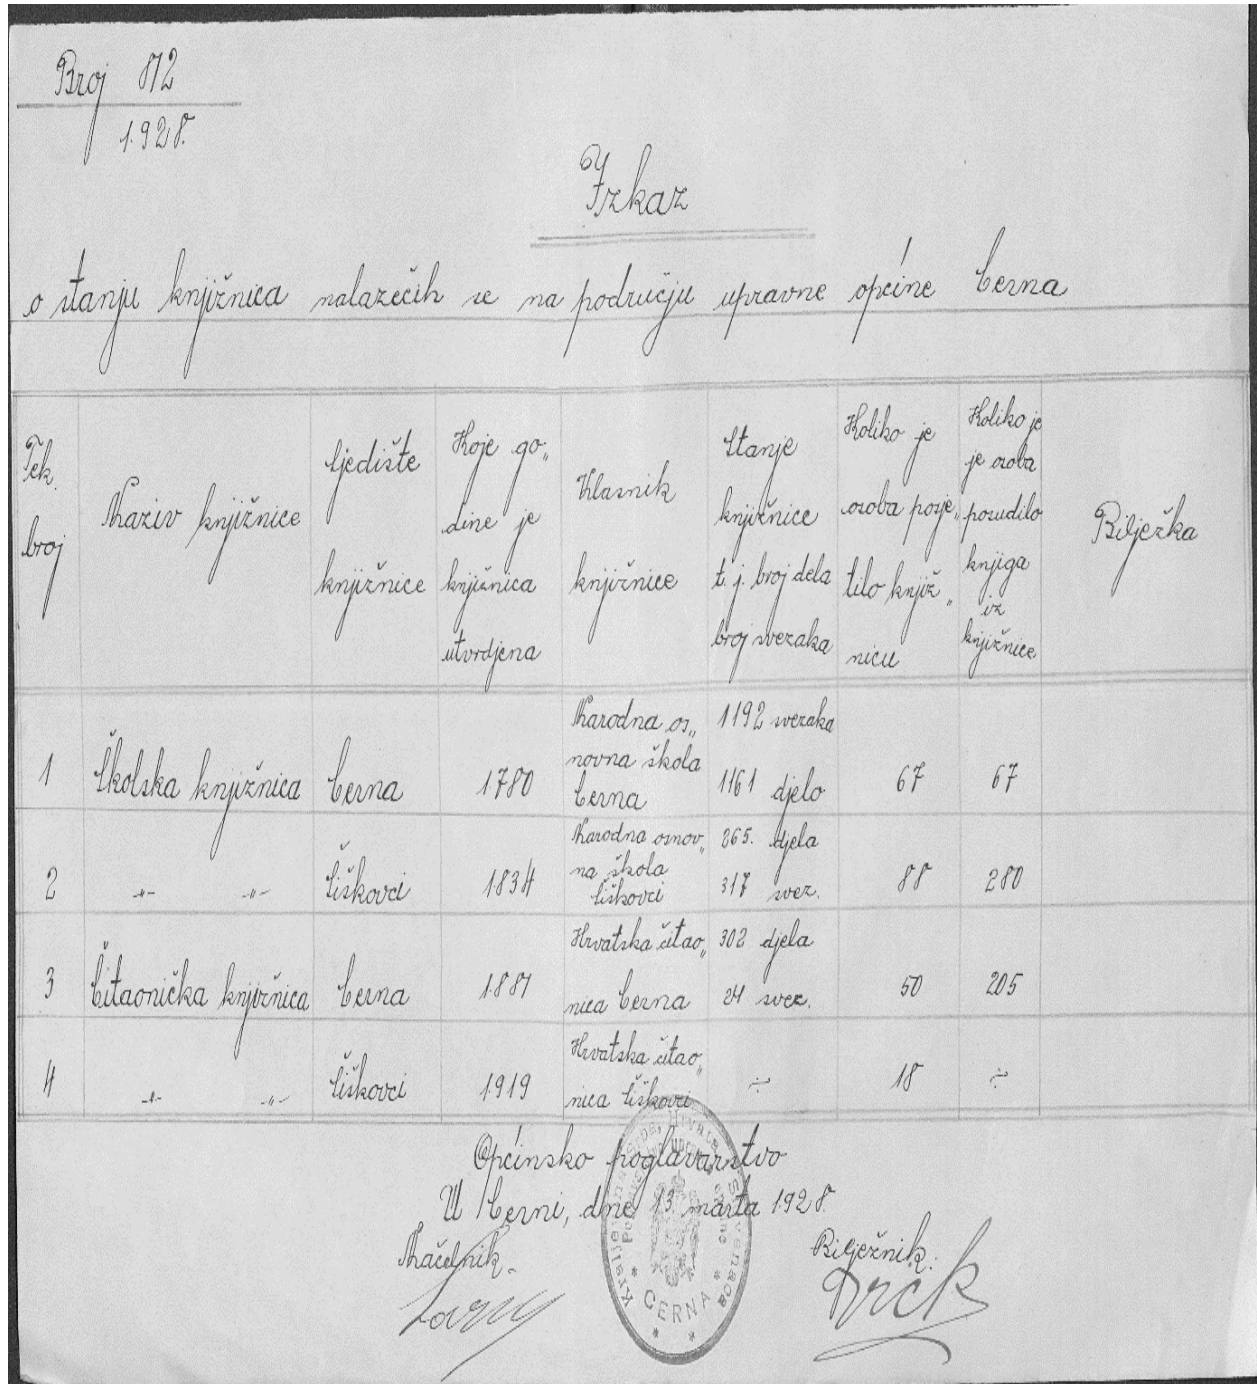 Broj 872
1928.
Izkaz
o stanju knjižnica nalazećih se na području upravne općine Cerna
Tek.
broj
Naziv knjižnice
Sjedište
knjižnice
Koje go„
dine je
knjižnica
utvrdjena
Vlasnik
knjižnice
Stanje
knjižnice
t. j. broj dela
broj svezaka
Koliko je
osoba posje„
tilo knjiž„
nicu
Koliko je
je osoba
posudilo
knjiga
iz
knjižnice
Bilježka
1 Školska knjižnica Cerna 1780
Narodna os„
novna škola
Cerna
1192 svezaka
1161 djelo
67 67
2 -„- -„- Šiškovci 1834
Narodna osnov„
na škola
Šiškovci
265. djela
317 svez.
88 280
3 Čitaonička knjižnica Cerna 1881
Hrvatska čitao„
nica Cerna
302 djela
24 svez.
50 205
4 -„- -„- Šiškovci 1919
Hrvatska čitao„
nica Šiškovci
÷ 18 ÷
Općinsko poglavarstvo
U Cerni, dne 13 marta 1928.
Načelnik.
Bilježnik:
CERNA